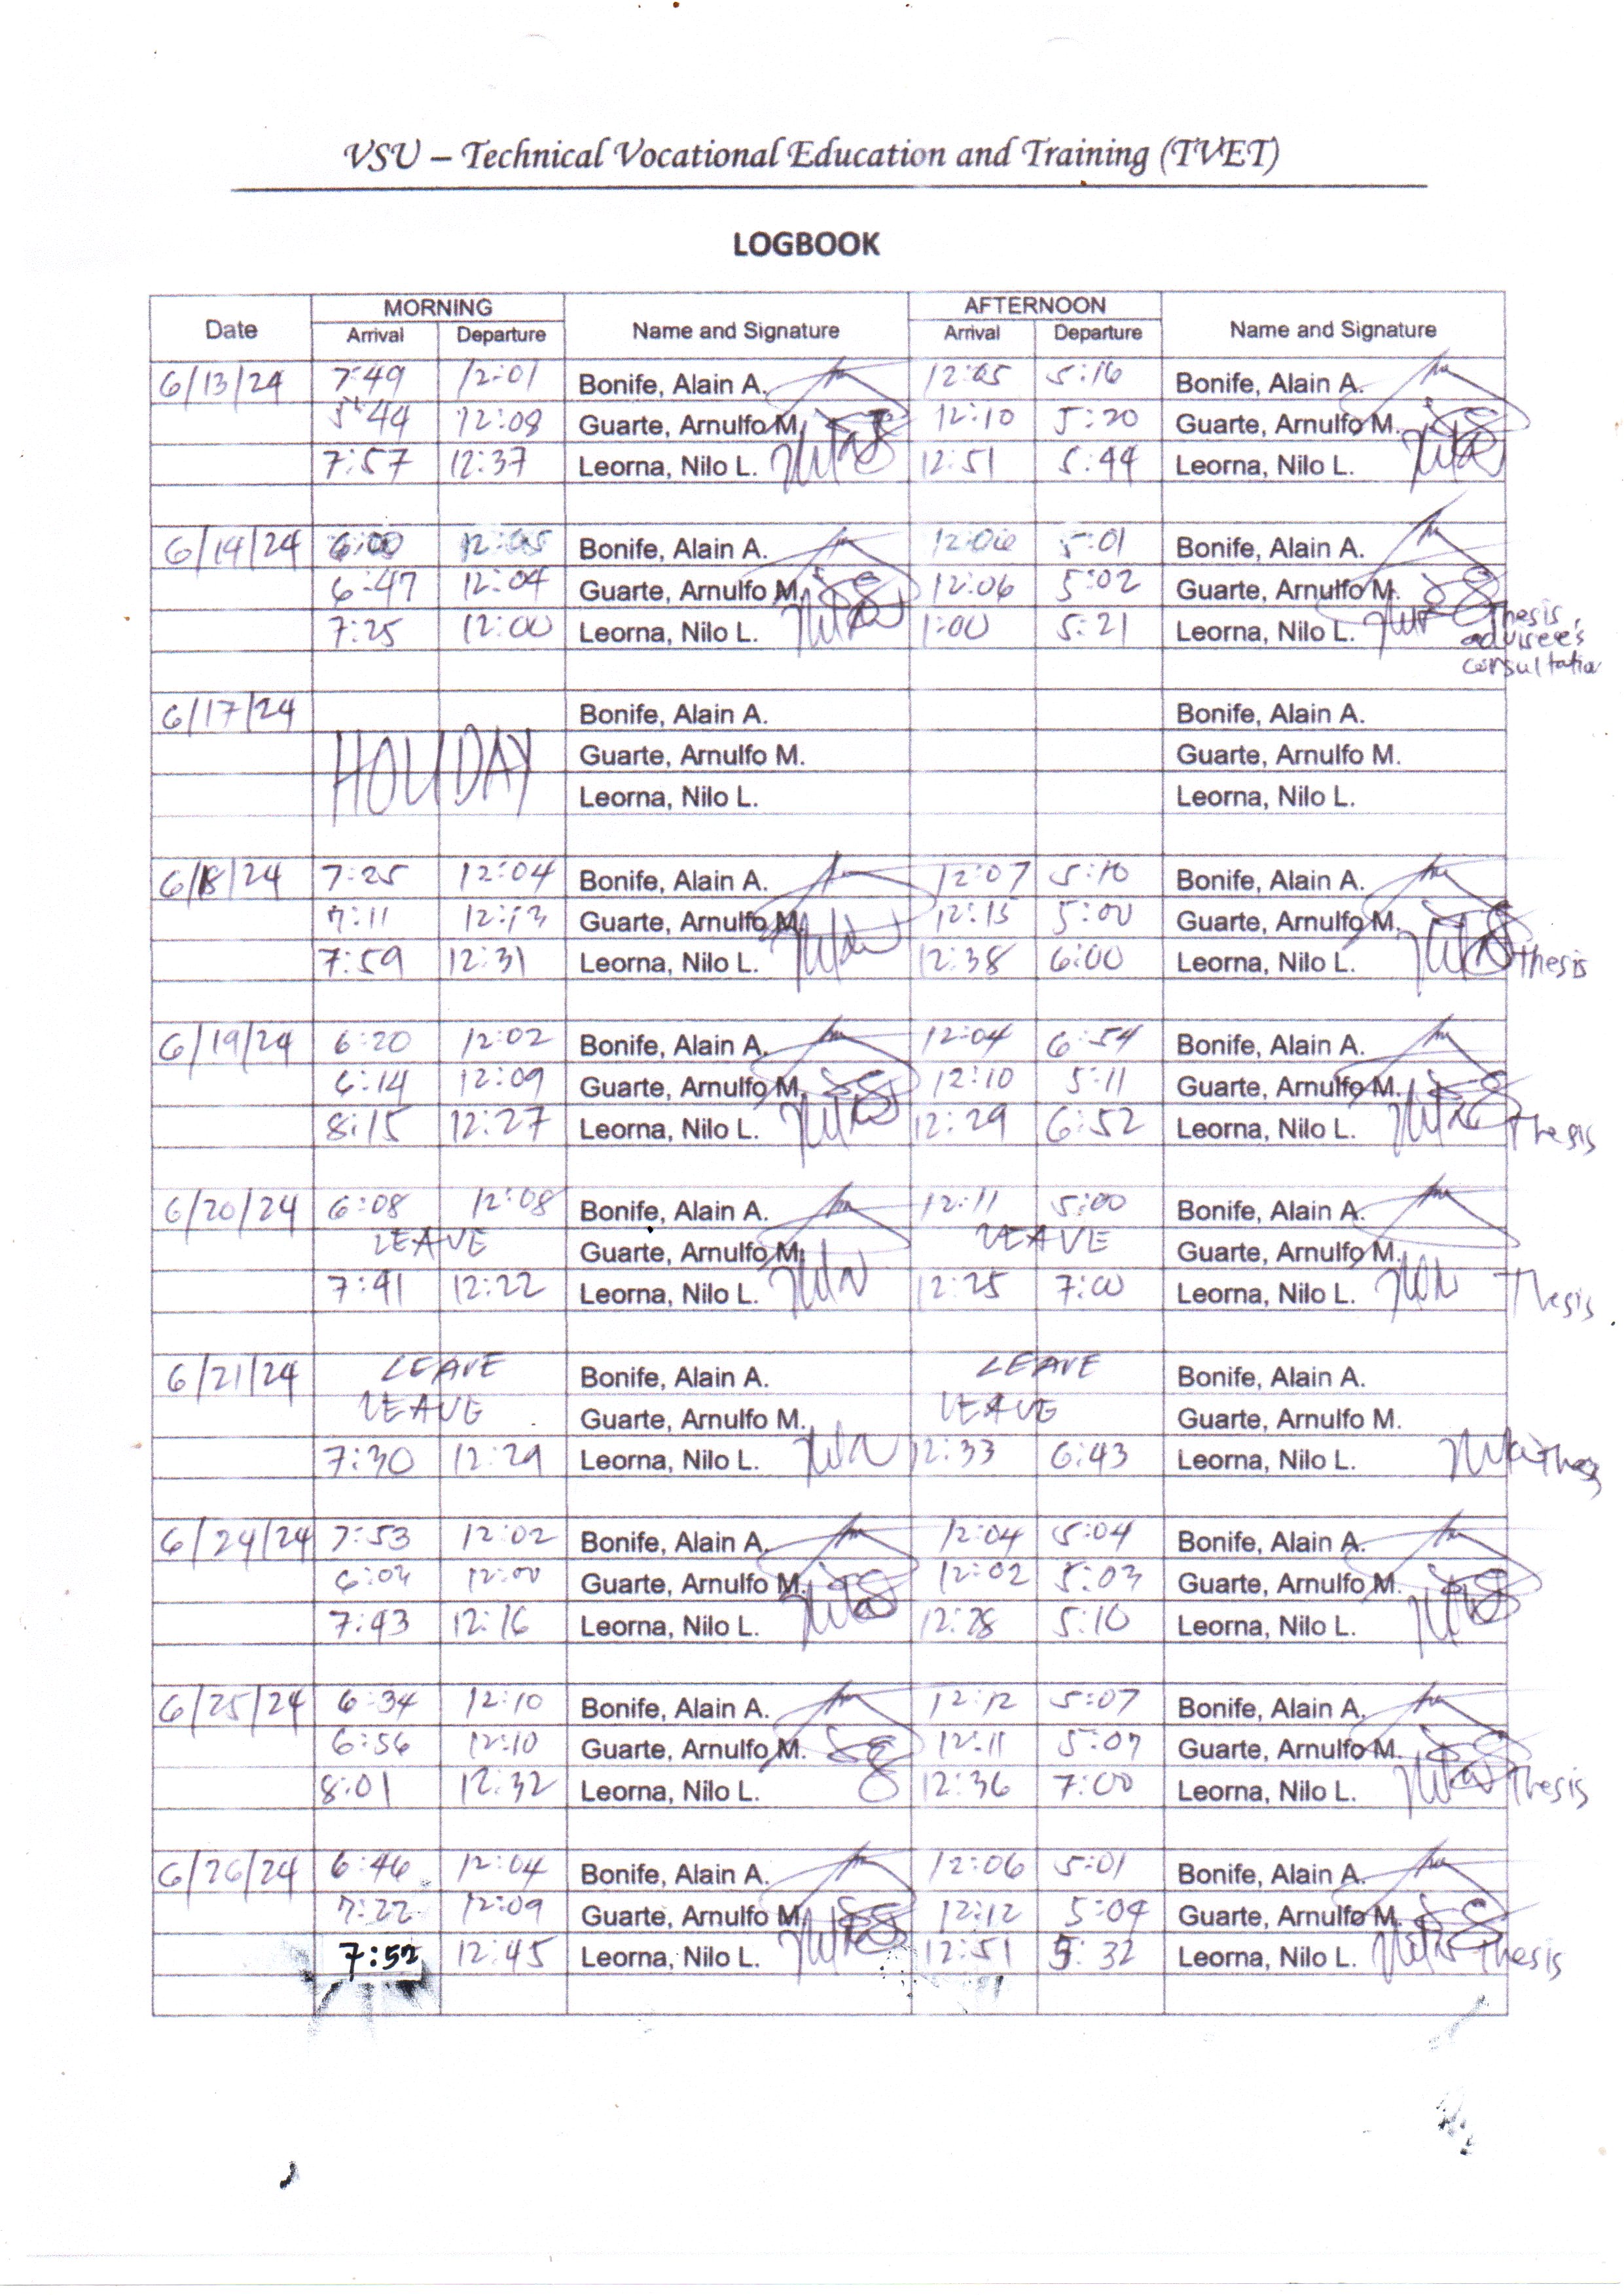 VSU – Technical Vocational Education and Training (TVET)
LOGBOOK
Date MORNING Name and Signature AFTERNOON Name and Signature
Arrival Departure Arrival Departure
6/13/24 7:49 12:01 Bonife, Alain A. 12:05 5:16 Bonife, Alain A.
5:44 12:08 Guarte, Arnulfo M. 12:10 5:20 Guarte, Arnulfo M.
7:57 12:37 Leorna, Nilo L. 12:51 5:44 Leorna, Nilo L.
6/14/24 6:00 12:05 Bonife, Alain A. 12:06 5:01 Bonife, Alain A.
6:47 12:04 Guarte, Arnulfo M. 12:06 5:02 Guarte, Arnulfo M.
7:25 12:00 Leorna, Nilo L. 1:00 5:21 Leorna, Nilo L. Thesis,
advisee's
consultation
6/17/24 Bonife, Alain A. Bonife, Alain A.
HOLIDAY Guarte, Arnulfo M. Guarte, Arnulfo M.
Leorna, Nilo L. Leorna, Nilo L.
6/18/24 7:25 12:04 Bonife, Alain A. 12:07 5:10 Bonife, Alain A.
7:11 12:13 Guarte, Arnulfo M. 12:15 5:00 Guarte, Arnulfo M.
7:59 12:31 Leorna, Nilo L. 12:38 6:00 Leorna, Nilo L. Thesis
6/19/24 6:20 12:02 Bonife, Alain A. 12:04 6:54 Bonife, Alain A.
6:14 12:09 Guarte, Arnulfo M. 12:10 5:11 Guarte, Arnulfo M.
8:15 12:27 Leorna, Nilo L. 12:29 6:52 Leorna, Nilo L. Thesis
6/20/24 6:08 12:08 Bonife, Alain A. 12:11 5:00 Bonife, Alain A.
LEAVE Guarte, Arnulfo M. LEAVE Guarte, Arnulfo M.
7:41 12:22 Leorna, Nilo L. 12:25 7:00 Leorna, Nilo L. Thesis
6/21/24 LEAVE Bonife, Alain A. LEAVE Bonife, Alain A.
LEAVE Guarte, Arnulfo M. LEAVE Guarte, Arnulfo M.
7:30 12:29 Leorna, Nilo L. 12:33 6:43 Leorna, Nilo L.
6/24/24 7:53 12:02 Bonife, Alain A. 12:04 5:04 Bonife, Alain A.
6:03 12:00 Guarte, Arnulfo M. 12:02 5:03 Guarte, Arnulfo M.
7:43 12:16 Leorna, Nilo L. 12:28 5:10 Leorna, Nilo L.
6/25/24 6:34 12:10 Bonife, Alain A. 12:12 5:07 Bonife, Alain A.
6:56 12:10 Guarte, Arnulfo M. 12:11 5:07 Guarte, Arnulfo M.
8:01 12:32 Leorna, Nilo L. 12:36 7:00 Leorna, Nilo L. Thesis
6/26/24 6:46 12:04 Bonife, Alain A. 12:06 5:01 Bonife, Alain A.
7:22 12:09 Guarte, Arnulfo M. 12:12 5:04 Guarte, Arnulfo M.
7:52 12:45 Leorna, Nilo L. 12:51 5:32 Leorna, Nilo L. Thesis